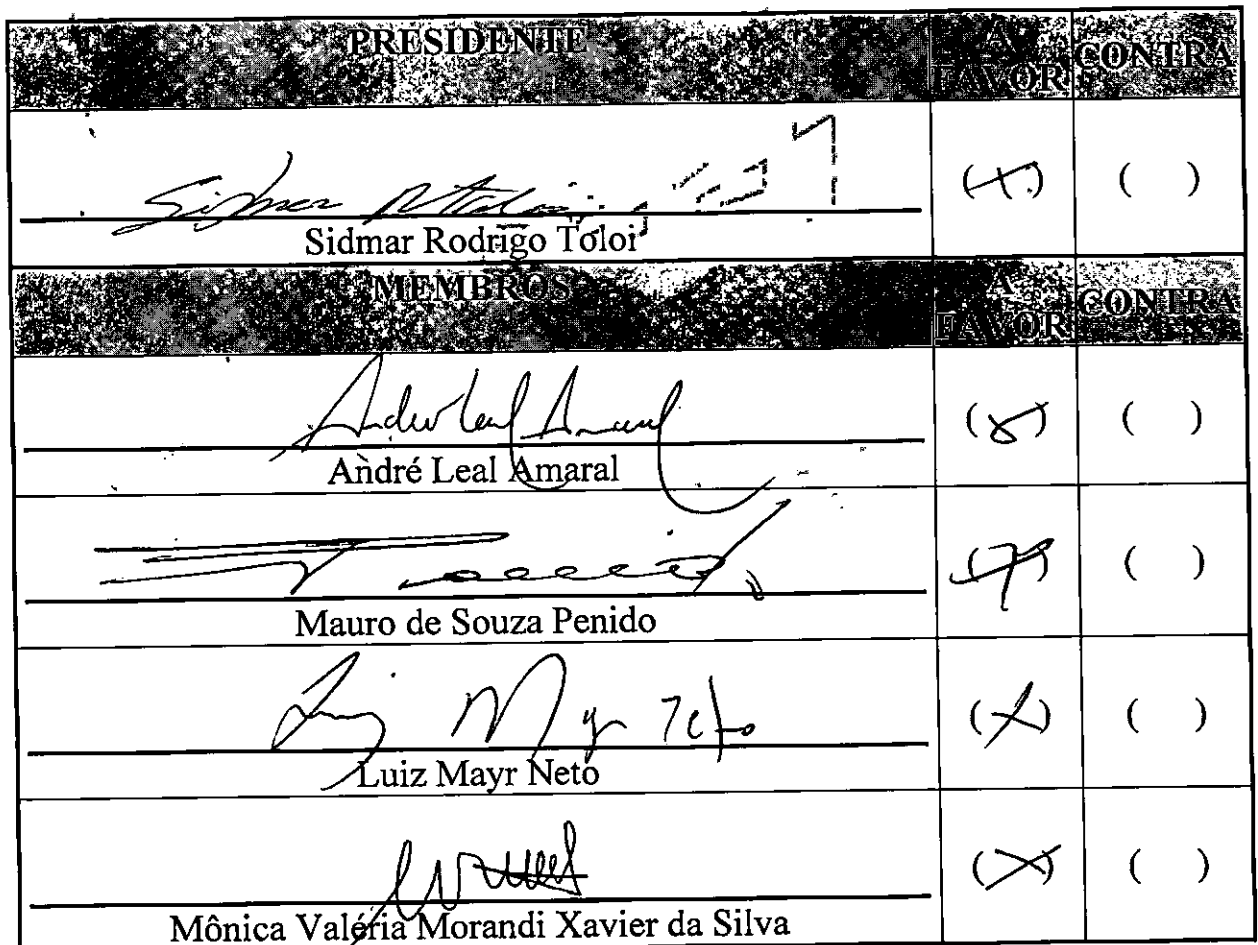 PRESIDENTE A FAVOR CONTRA
(X) ( )
Sidmar Rodrigo Toloi
MEMBROS A FAVOR CONTRA
(X) ( )
André Leal Amaral
(X) ( )
Mauro de Souza Penido
Luiz Mayr Neto (X) ( )
Luiz Mayr Neto
(X) ( )
Mônica Valéria Morandi Xavier da Silva